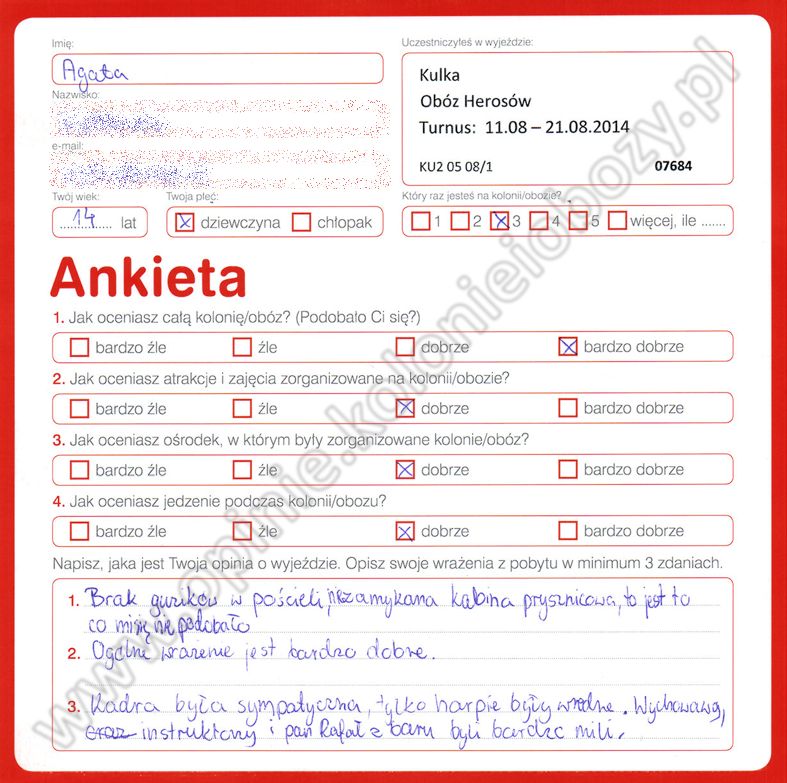 Imię:
Agata
Nazwisko:
e-mail:
Twój wiek:
14 lat
Twoja płeć:
dziewczyna chłopak
Uczestniczyłeś w wyjeździe:
Kulka
Obóz Herosów
Turnus: 11.08 – 21.08.2014
KU2 05 08/1 07684
Który raz jesteś na kolonii/obozie?
1 2 3 4 5 więcej, ile .......
Ankieta
1. Jak oceniasz całą kolonię/obóz? (Podobało Ci się?)
bardzo źle źle dobrze bardzo dobrze
2. Jak oceniasz atrakcje i zajęcia zorganizowane na kolonii/obozie?
bardzo źle źle dobrze bardzo dobrze
3. Jak oceniasz ośrodek, w którym były zorganizowane kolonie/obóz?
bardzo źle źle dobrze bardzo dobrze
4. Jak oceniasz jedzenie podczas kolonii/obozu?
bardzo źle źle dobrze bardzo dobrze
Napisz, jaka jest Twoja opinia o wyjeździe. Opisz swoje wrażenia z pobytu w minimum 3 zdaniach.
1. Brak guzików w pościeli, niezamykana kabina prysznicowa, to jest to
co mi się nie podobało
2. Ogólne wrażenie jest bardzo dobre.
3. Kadra była sympatyczna, tylko harpie były wredne. Wychowawcy,
oraz instruktorzy i pan Rafał z baru byli bardzo mili.
www.opinie.kolonieiobozy.pl